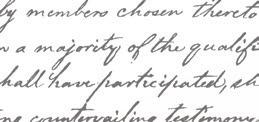 by members chosen thereto
a majority of the qualifi
hall have participated, sh
countervailing testimony